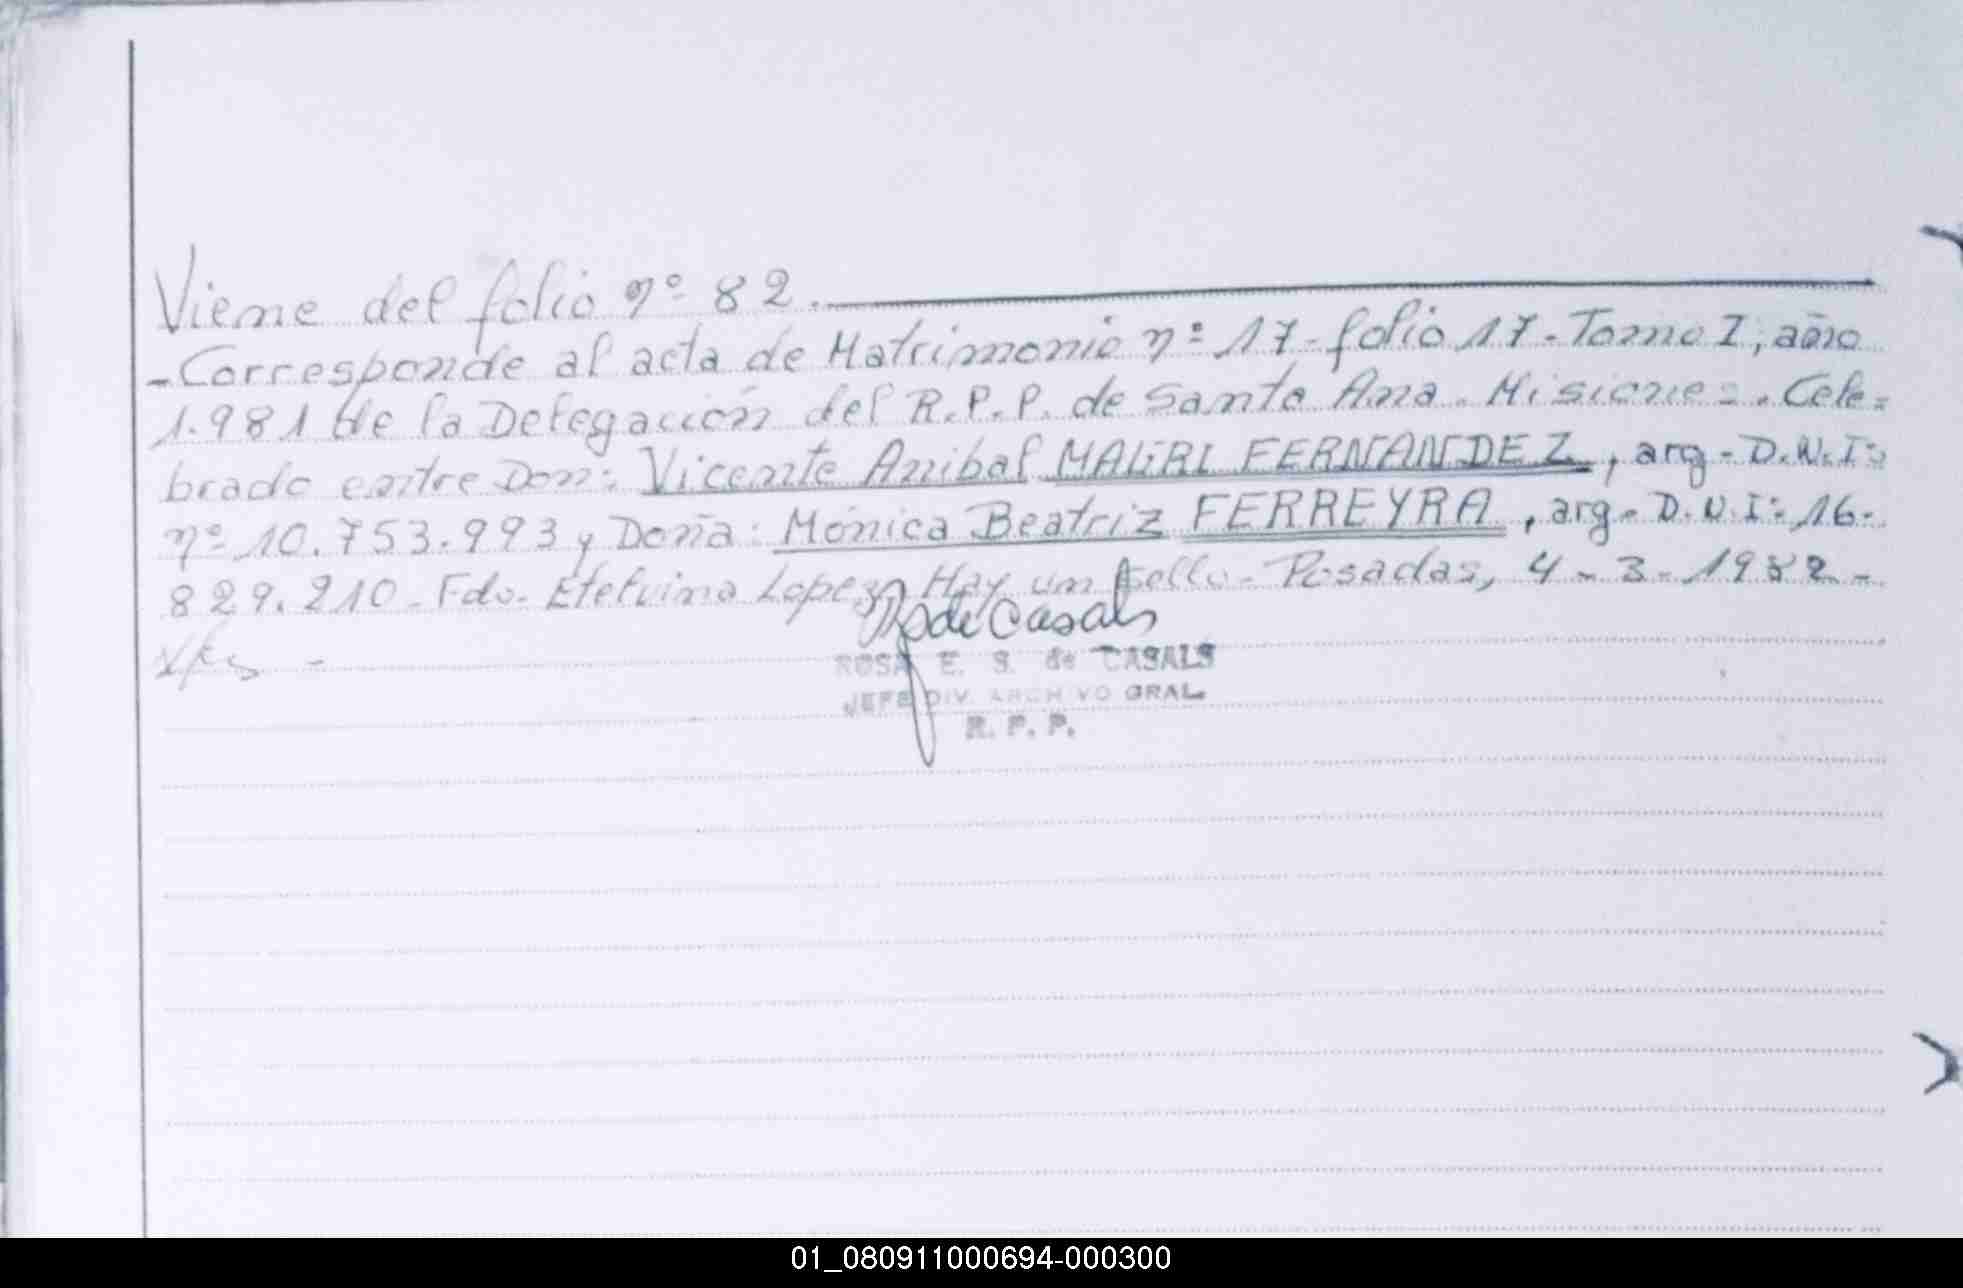 Viene del folio nº 82.
-Corresponde al acta de Matrimonio nº 17-folio 17-Tomo I, año
1.981 de la Delegación del R.P.P. de Santa Ana. Misiones. Cele=
brado entre Don: Vicente Anibal MAURI FERNANDEZ, arg- D.N.I:
nº 10.753.993 y Doña: Mónica Beatriz FERREYRA, arg- D.N.I: 16.
829.210- Fdo. Etelvina Lopez. Hay un sello- Posadas, 4-3-1982-
de Casals
ROSA E. S. de CASALS
JEFE DIV. ARCHIVO GRAL.
R. P. P.
01_080911000694-000300